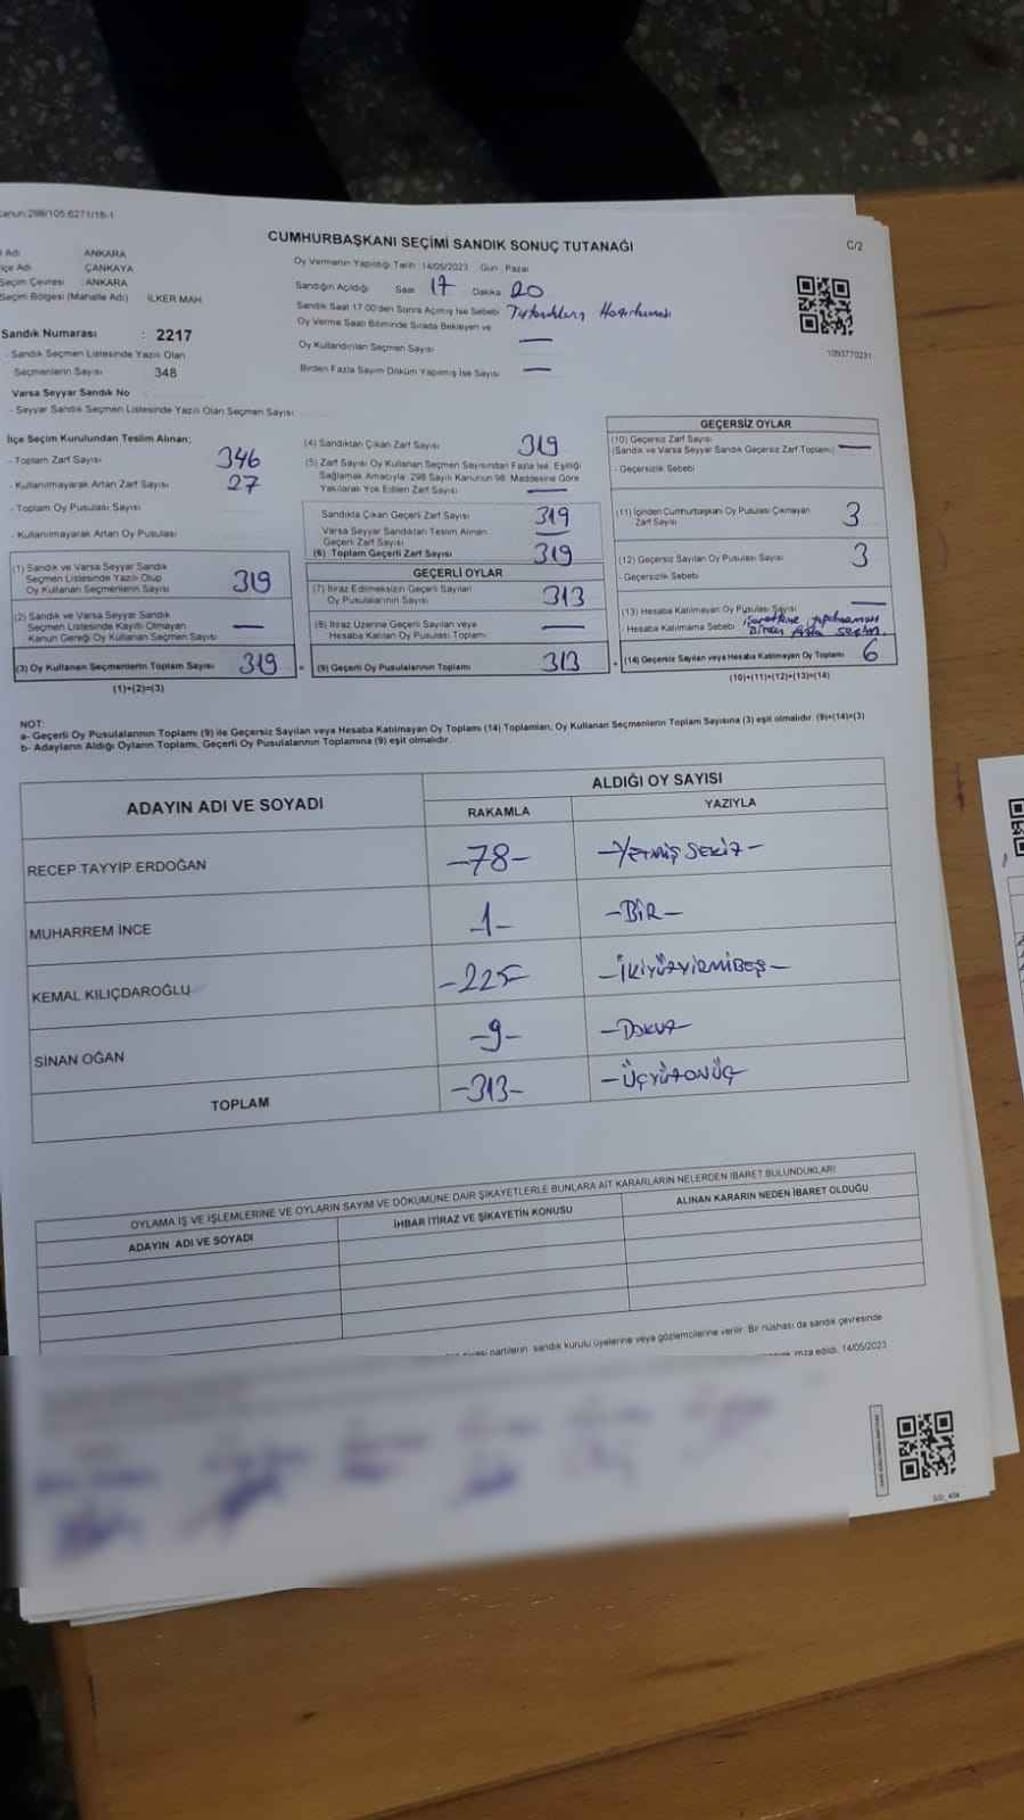 CUMHURBAŞKANI SEÇİMİ SANDIK SONUÇ TUTANAĞI
C/2
Adı ANKARA
İlçe Adı ÇANKAYA
Seçim Çevresi ANKARA
Seçim Bölgesi (Mahalle Adı) İLKER MAH.
Sandık Numarası : 2217
Sandık Seçmen Listesinde Yazılı Olan
Seçmenlerin Sayısı 348
Varsa Seyyar Sandık No
- Seyyar Sandık Seçmen Listesinde Yazılı Olan Seçmen Sayısı
Oy Vermenin Yapıldığı Tarih : 14/05/2023 Gün : Pazar
Sandığın Açıldığı Saat 17 Dakika 20
Sandık Saat 17:00'den Sonra Açılmış İse Sebebi
Oy Verme Saati Bitiminde Sırada Bekleyen ve
Oy Kullandırılan Seçmen Sayısı —
Birden Fazla Sayım Döküm Yapılmış İse Sayısı —
1093770231
İlçe Seçim Kurulundan Teslim Alınan;
- Toplam Zarf Sayısı 346
- Kullanılmayarak Artan Zarf Sayısı 27
- Toplam Oy Pusulası Sayısı
- Kullanılmayarak Artan Oy Pusulası
(1) Sandık ve Varsa Seyyar Sandık
Seçmen Listesinde Yazılı Olup
Oy Kullanan Seçmenlerin Sayısı 319
(2) Sandık ve Varsa Seyyar Sandık
Seçmen Listesinde Kayıtlı Olmayan
Kanun Gereği Oy Kullanan Seçmen Sayısı —
(3) Oy Kullanan Seçmenlerin Toplam Sayısı 319
(1)+(2)=(3)
(4) Sandıktan Çıkan Zarf Sayısı 319
(5) Zarf Sayısı Oy Kullanan Seçmen Sayısından Fazla İse, Eşitliği
Sağlamak Amacıyla 298 Sayılı Kanunun 98. Maddesine Göre
Yakılarak Yok Edilen Zarf Sayısı —
Sandıkta Çıkan Geçerli Zarf Sayısı 319
Varsa Seyyar Sandıktan Teslim Alınan
Geçerli Zarf Sayısı —
(6) Toplam Geçerli Zarf Sayısı 319
GEÇERLİ OYLAR
(7) İtiraz Edilmeksizin Geçerli Sayılan
Oy Pusulalarının Sayısı 313
(8) İtiraz Üzerine Geçerli Sayılan veya
Hesaba Katılan Oy Pusulası Toplamı —
(9) Geçerli Oy Pusulalarının Toplamı 313
GEÇERSİZ OYLAR
(10) Geçersiz Zarf Sayısı
(Sandık ve Varsa Seyyar Sandık Geçersiz Zarf Toplamı) —
- Geçersizlik Sebebi
(11) İçinden Cumhurbaşkanı Oy Pusulası Çıkmayan
Zarf Sayısı 3
(12) Geçersiz Sayılan Oy Pusulası Sayısı 3
- Geçersizlik Sebebi
(13) Hesaba Katılmayan Oy Pusulası Sayısı —
- Hesaba Katılmama Sebebi
(14) Geçersiz Sayılan veya Hesaba Katılmayan Oy Toplamı 6
(10)+(11)+(12)+(13)=(14)
NOT:
a- Geçerli Oy Pusulalarının Toplamı (9) ile Geçersiz Sayılan veya Hesaba Katılmayan Oy Toplamı (14) Toplamları, Oy Kullanan Seçmenlerin Toplam Sayısına (3) eşit olmalıdır. (9)+(14)=(3)
b- Adayların Aldığı Oyların Toplamı, Geçerli Oy Pusulalarının Toplamına (9) eşit olmalıdır.
ADAYIN ADI VE SOYADI ALDIĞI OY SAYISI
RAKAMLA YAZIYLA
RECEP TAYYİP ERDOĞAN -78- -YETMİŞ SEKİZ-
MUHARREM İNCE -1- -BİR-
KEMAL KILIÇDAROĞLU -225- -İKİYÜZYİRMİBEŞ-
SİNAN OĞAN -9- -DOKUZ-
TOPLAM -313- -ÜÇYÜZONÜÇ-
OYLAMA İŞ VE İŞLEMLERİNE VE OYLARIN SAYIM VE DÖKÜMÜNE DAİR ŞİKAYETLERLE BUNLARA AİT KARARLARIN NELERDEN İBARET BULUNDUKLARI
ADAYIN ADI VE SOYADI İHBAR İTİRAZ VE ŞİKAYETİN KONUSU ALINAN KARARIN NEDEN İBARET OLDUĞU
partilerin, sandık kurulu üyelerine veya gözlemcilerine verilir. Bir nüshası da sandık çevresinde
imza edildi. 14/05/2023